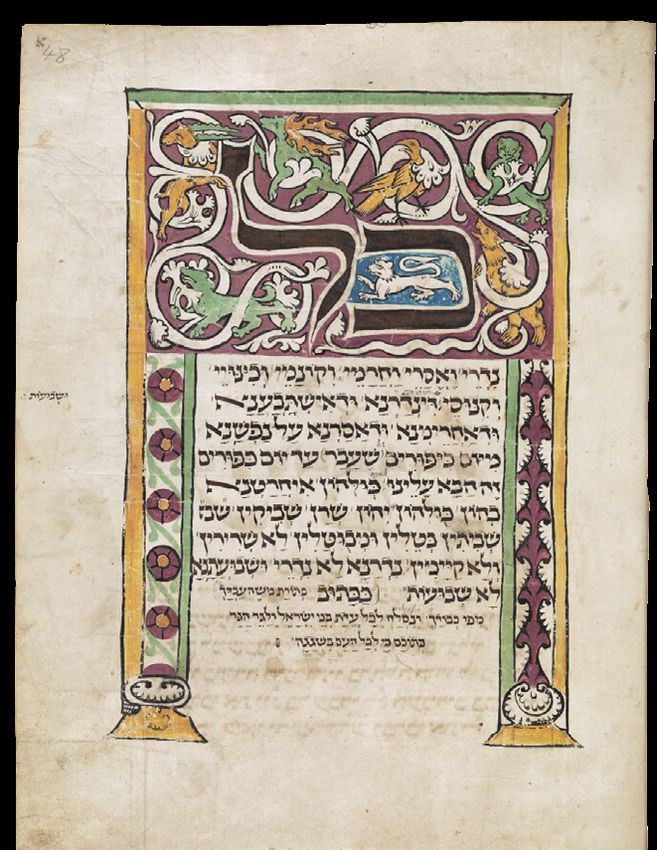 48
כל
נדרי ואסרי וחרמי וקונמי וכינויי
וקנוסי דינדרנא ודאישתבענא
ושבועות
ודאחרימנא ודאסרנא על נפשנא
מיום כיפורים שעבר עד יום כפורים
זה הבא עלינו כולהון איחרטנא
בהון כולהון יהון שרן שביקין שבי
שביתין בטלין ומבוטלין לא שרירין
ולא קיימין נדרנא לא נדרי ושבועתנא
לא שבועות ככתוב בתורת משה עבדך
מפי כבודך ונסלח לכל עדת בני ישראל ולגר הגר
בתוכם כי לכל העם בשגגה